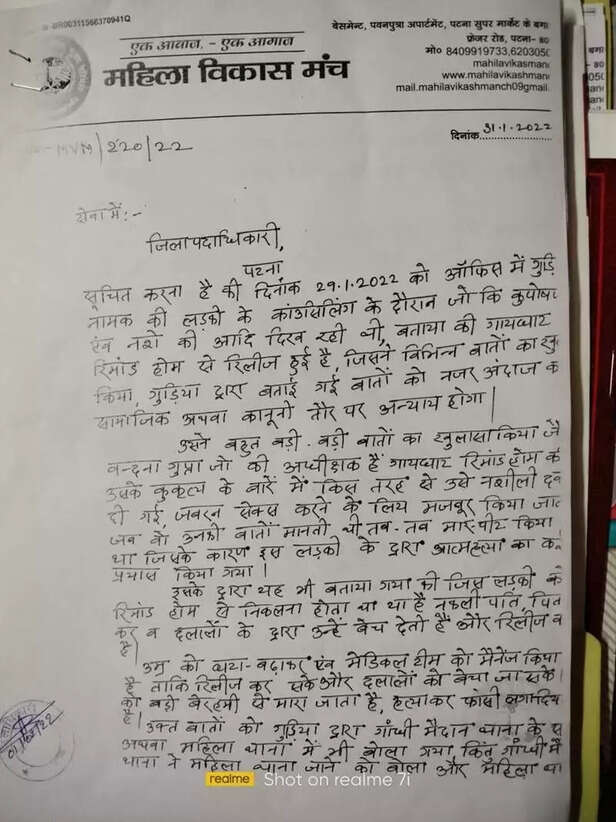 BR0031156637094​1Q
एक आवाज, - एक आगाज
महिला विकास मंच
बेसमेन्ट, पवनपुत्रा अपार्टमेंट, पटना सुपर मार्केट के बगल
फ्रेजर रोड, पटना- 80
मो० 8409919733,620305
mahilavikasman
www.mahilavikashman
mail.mahilavikashmanch09@gmail
दिनांक 31.1.2022
MVM/220/22
सेवा में:-
जिला पदाधिकारी,
पटना
सूचित करना है की दिनांक 29.1.2022 को ऑफिस में गुड़ि
नामक की लड़की के कांउसिलिंग के दौरान जो कि कुपोष
एंव नशे की आदि दिख रही थी, बताया की गायघाट
रिमांड होम से रिलीज हुई है, जिसने विभिन्न बातों का खु
किया, गुड़िया द्वारा बताई गई बातों को नजर अंदाज क
सामाजिक अथवा कानूनी तौर पर अन्याय होगा|
उसने बहुत बड़ी-बड़ी बातों का खुलासा किया जै
वन्दना गुप्ता जो की अधीक्षक हैं गायघाट रिमांड होम क
उसके कुकृत्य के बारें में किस तरह से उसे नशीली द
दी गई, जबरन सेक्स करने के लिय मजबूर किया जा
जब वो उनकी बातों मानती थी तब-तब मार-पीट किया
था जिसके कारण इस लड़की के द्वारा आत्महत्या का क
प्रयास किया गया|
उसके द्वारा यह भी बताया गया की जिस लड़की को
रिमांड होम से निकलना होता था है नकली पति पित
कर व दलालों के द्वारा उन्हें बेच देती हैं और रिलीज क
है|
उम्र को घटा-बढ़ाकर एंव मेडिकल टीम को मैनेज किया
है ताकि रिलीज कर सके और दलालों को बेचा जा सके|
को बड़ी बेरहमी से मारा जाता है, हत्या कर फांसी लगा दिया
है|
उक्त बातों को गुड़िया द्वारा गांधी मैदान थाना के स
अथवा महिला थानों में भी बोला गया किंतु गाँधी मै
थाना ने महिला थाना जाने को बोला और महिला था
realme Shot on realme 7i